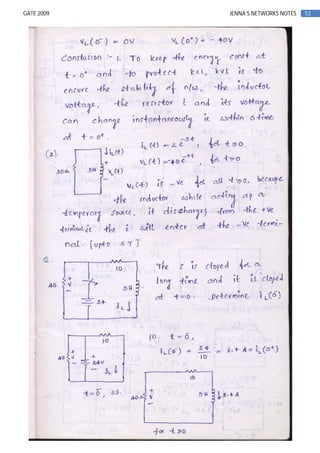 GATE 2009 JENNA'S NETWORKS NOTES 52
VL(0⁻) = 0V VL(0⁺) = - 40V
Conclusion :- 1. To keep the energy const at
t = 0⁺ and to protect KCL, KVL ie to
ensure the stability of n/w, the inductor
voltage, the resistor i and its voltage
can change instantaneously ie within 0 time
at t = 0⁺.
(2). iL(t) iL(t) = 2 e^-5t, for t≥0
20Ω 5H + VL(t) - VL(t) = -40 e^-5t, for t≥0
VL(t) is -ve for all t≥0, because
the inductor while acting as a
temporary source, it discharges from the +ve
terminal ie the i will enter at the -ve termi-
nal. [upto 5 T]
Q. 10 The S is closed for a
40 + V - 5H long time and it is closed
24 iL at t=0. Determine iL(0⁻)
10 (1). t=0⁻,
40 + V - + 24V - iL iL(0⁻) = 24/10 = 2.4 A = iL(0⁺)
10
t=0⁻, SS. 40Ω + V - 5H 2.4 A
for t≥0